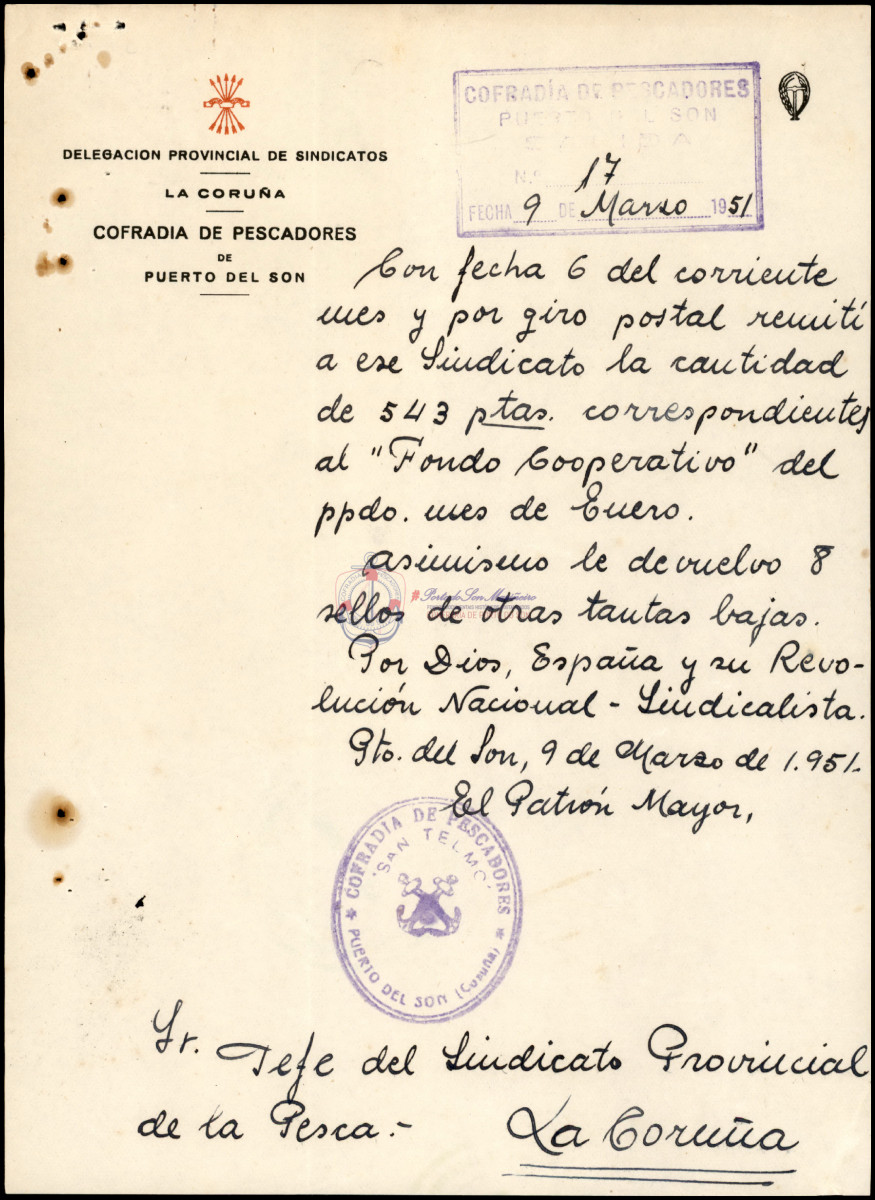 DELEGACION PROVINCIAL DE SINDICATOS
LA CORUÑA
COFRADIA DE PESCADORES
DE
PUERTO DEL SON
COFRADÍA DE PESCADORES
PUERTO DEL SON
SALIDA
N.º 17
FECHA 9 DE Marzo 1951
Con fecha 6 del corriente
mes y por giro postal remití
a ese Sindicato la cantidad
de 543 ptas. correspondientes
al "Fondo Cooperativo" del
ppdo. mes de Enero.
Asimismo le devuelvo 8
sellos de otras tantas bajas.
Por Dios, España y su Revo-
lución Nacional-Sindicalista.
Pto. del Son, 9 de Marzo de 1.951.
El Patrón Mayor,
COFRADIA DE PESCADORES
"SAN TELMO"
PUERTO DEL SON (Coruña)
Sr. Jefe del Sindicato Provincial
de la Pesca.-
La Coruña